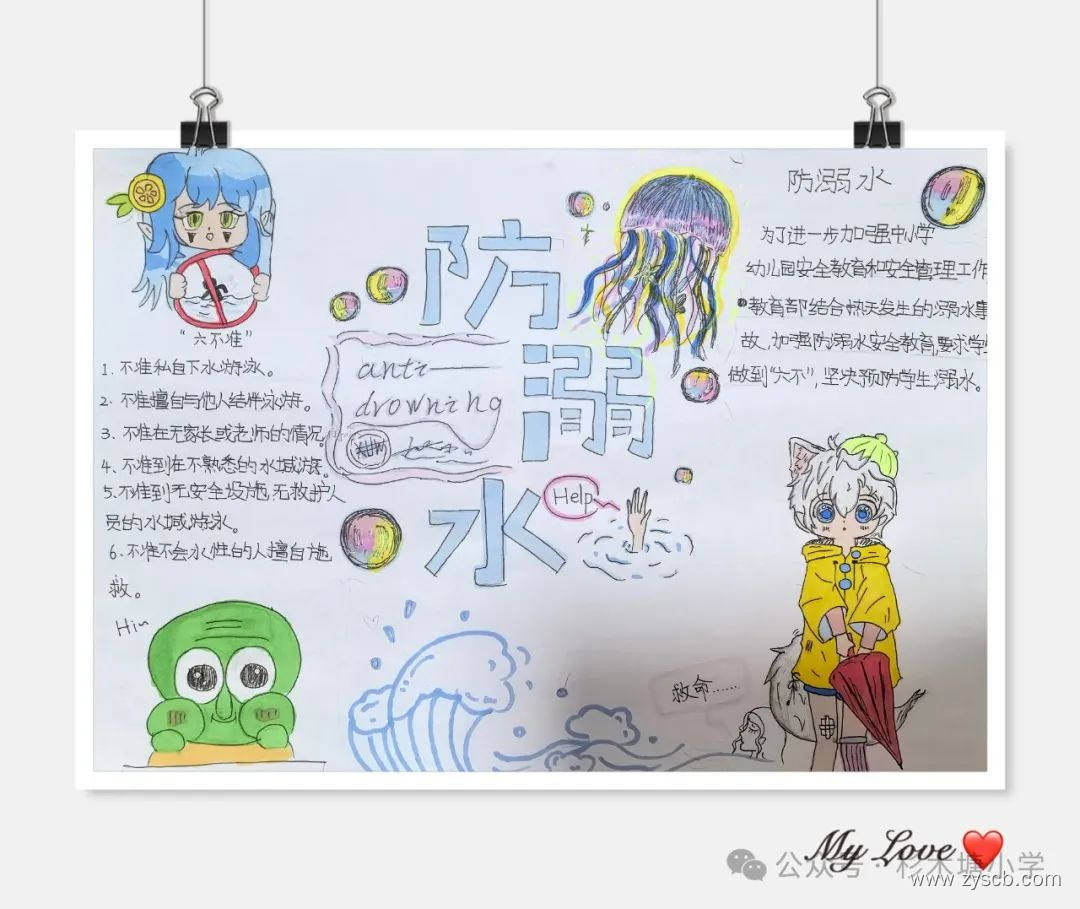 "六不准"
1. 不准私自下水游泳。
2. 不准擅自与他人结伴泳游。
3. 不准在无家长或老师的情况。
4. 不准到在不熟悉的水域游。
5. 不准到无安全设施,无救护人
员的水域游泳。
6. 不准不会水性的人擅自施
救。
Hin
防
溺
水
anti—
drowning
Help
防溺水
为了进一步加强中小学
幼儿园安全教育和安全管理工作
教育部结合执天发生的溺水事
故,加强防溺水安全教育,要求学生
做到"六不",坚决预防学生溺水。
救命……
My Love
公众号·杉木塘小学
www.zyscb.com